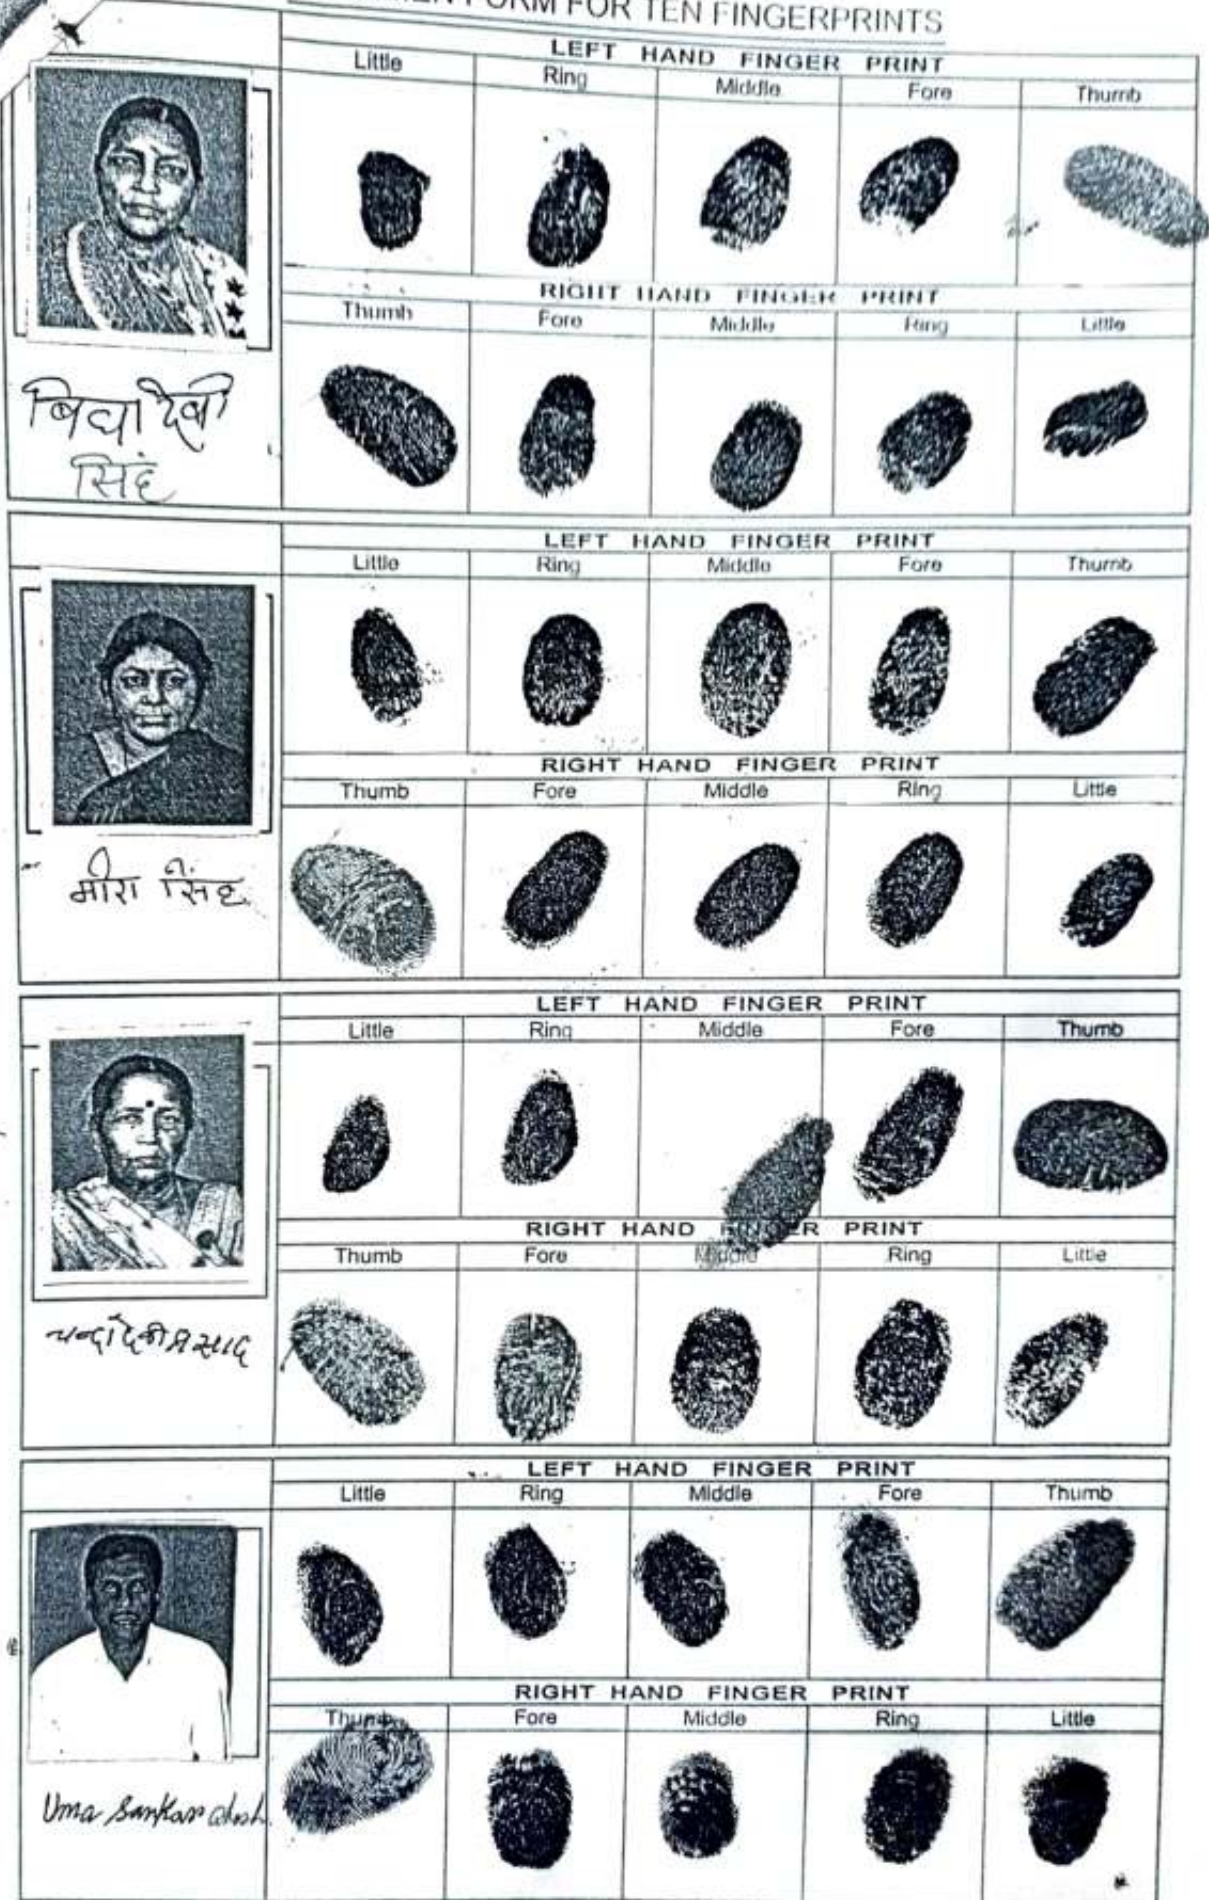 FORM FOR TEN FINGERPRINTS
LEFT HAND FINGER PRINT
Little Ring Middle Fore Thumb
RIGHT HAND FINGER PRINT
Thumb Fore Middle Ring Little
बिद्या देबी
सिंह
LEFT HAND FINGER PRINT
Little Ring Middle Fore Thumb
RIGHT HAND FINGER PRINT
Thumb Fore Middle Ring Little
मीरा सिंह
LEFT HAND FINGER PRINT
Little Ring Middle Fore Thumb
RIGHT HAND FINGER PRINT
Thumb Fore Middle Ring Little
चन्दा देवी प्रसाद
LEFT HAND FINGER PRINT
Little Ring Middle Fore Thumb
RIGHT HAND FINGER PRINT
Thumb Fore Middle Ring Little
Uma Sankar Ghosh